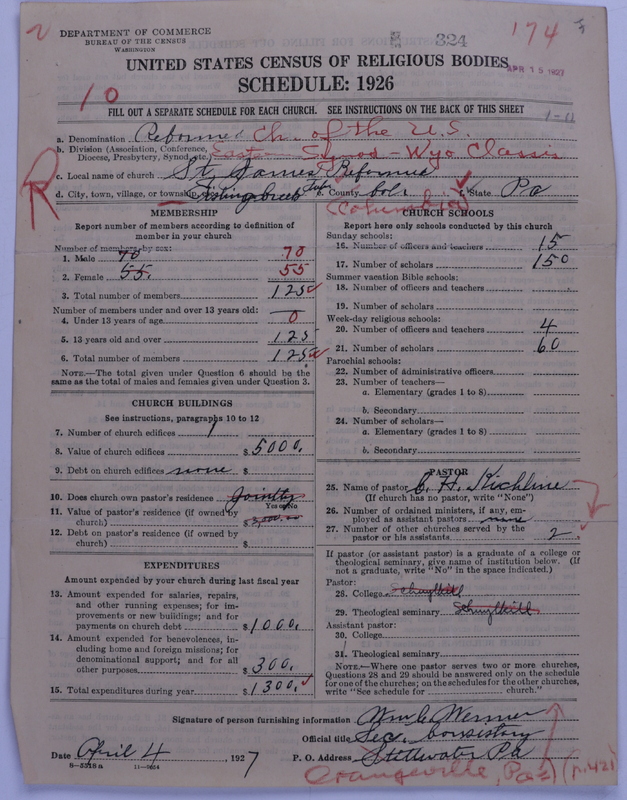 DEPARTMENT OF COMMERCE
BUREAU OF THE CENSUS
WASHINGTON
324
174
UNITED STATES CENSUS OF RELIGIOUS BODIES
APR 15 1927
SCHEDULE: 1926
10
FILL OUT A SEPARATE SCHEDULE FOR EACH CHURCH. SEE INSTRUCTIONS ON THE BACK OF THIS SHEET
R
a. Denomination Reformed Ch. of the U.S.
b. Division (Association, Conference, Diocese, Presbytery, Synod, etc.) Eastern Synod - Wyo Classis
c. Local name of church St. James Reformed
d. City, town, village, or township Fishingcreek twp e. County Col. f. State Pa
(Columbia)
MEMBERSHIP
Report number of members according to definition of
member in your church
Number of members by sex:
1. Male 70 70
2. Female 55. 55
3. Total number of members 125
Number of members under and over 13 years old:
4. Under 13 years of age 0
5. 13 years old and over 125
6. Total number of members 125
NOTE.—The total given under Question 6 should be the
same as the total of males and females given under Question 3.
CHURCH BUILDINGS
See instructions, paragraphs 10 to 12
7. Number of church edifices 1
8. Value of church edifices $ 5000.
9. Debt on church edifices none $
10. Does church own pastor's residence Jointly
Yes or No
11. Value of pastor's residence (if owned by
church) $
12. Debt on pastor's residence (if owned by
church) $
EXPENDITURES
Amount expended by your church during last fiscal year
13. Amount expended for salaries, repairs,
and other running expenses; for im-
provements or new buildings; and for
payments on church debt $ 1000.
14. Amount expended for benevolences, in-
cluding home and foreign missions; for
denominational support; and for all
other purposes $ 300.
15. Total expenditures during year $ 1300.
CHURCH SCHOOLS
Report here only schools conducted by this church
Sunday schools:
16. Number of officers and teachers 15
17. Number of scholars 150
Summer vacation Bible schools:
18. Number of officers and teachers
19. Number of scholars
Week-day religious schools:
20. Number of officers and teachers 4
21. Number of scholars 60
Parochial schools:
22. Number of administrative officers
23. Number of teachers—
a. Elementary (grades 1 to 8)
b. Secondary
24. Number of scholars—
a. Elementary (grades 1 to 8)
b. Secondary
PASTOR
25. Name of pastor C. H. Kichline
(If church has no pastor, write "None")
26. Number of ordained ministers, if any, em-
ployed as assistant pastors none
27. Number of other churches served by the
pastor or his assistants 2
If pastor (or assistant pastor) is a graduate of a college or
theological seminary, give name of institution below. (If
not a graduate, write "No" in the space indicated.)
Pastor:
28. College
29. Theological seminary
Assistant pastor:
30. College
31. Theological seminary
NOTE.—Where one pastor serves two or more churches,
Questions 28 and 29 should be answered only on the schedule
for one of the churches; on the schedules for the other churches,
write "See schedule for church."
Signature of person furnishing information Wm C. Wenner
Official title Sec. Consistory
Date April 4, 1927 P. O. Address Stillwater Pa
8-5518a 11-9654
Orangeville, Pa.